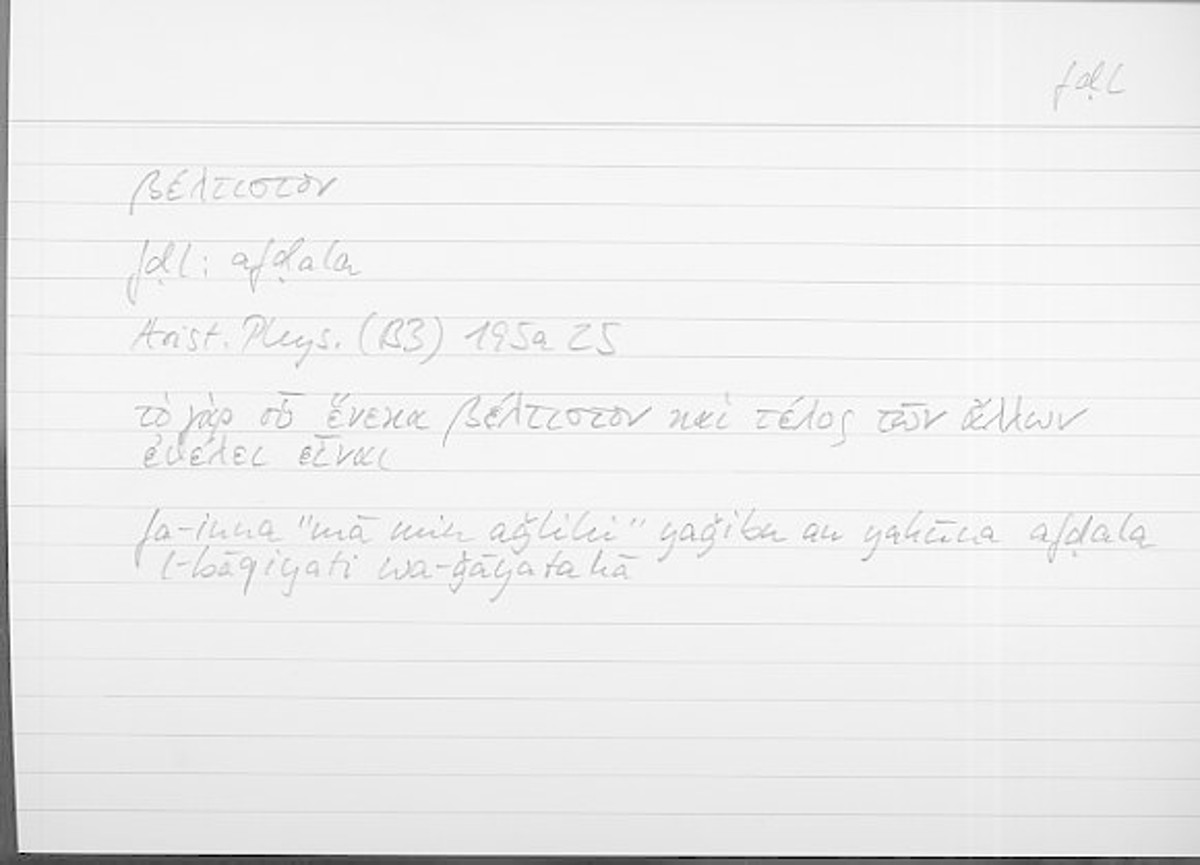 fḍl
βέλτιστον
fḍl: afḍala
Arist. Phys. (B3) 195a 25
τὸ γὰρ οὗ ἕνεκα βέλτιστον καὶ τέλος τῶν ἄλλων
ἐθέλει εἶναι
fa-inna "mā min aǧlihi" yaǧibu an yakūna afḍala
l-bāqiyati wa-ġāyatahā